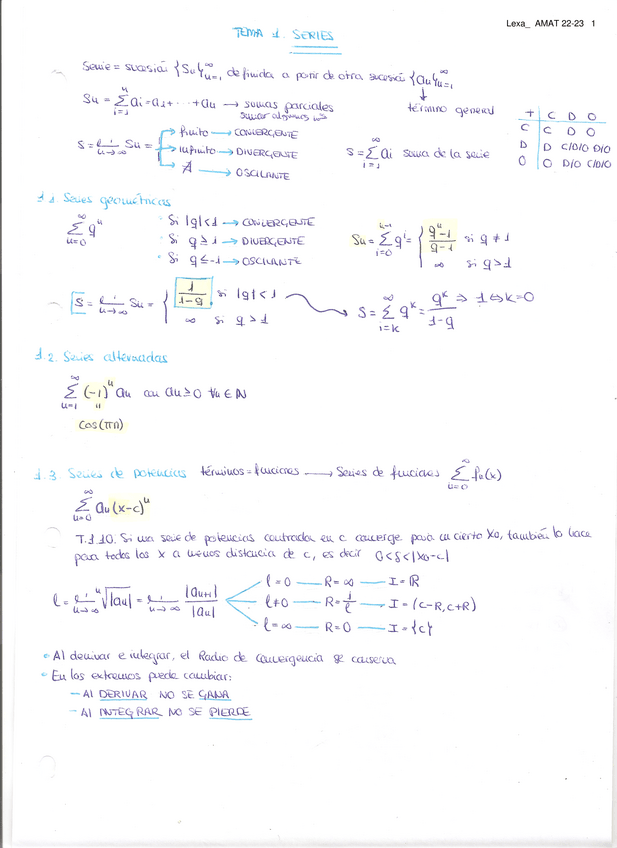 Lexa_ AMAT 22-23 1
TEMA 1. SERIES
Serie = sucesión {Sn}∞n=1 definida a partir de otra sucesión {an}∞n=1
Sn = ∑ⁿi=1 ai = a1 + ··· + an → sumas parciales
sumar algunos
término general
S = lim n→∞ Sn =
finito → CONVERGENTE
infinito → DIVERGENTE
∄ → OSCILANTE
S = ∑∞i=1 ai suma de la serie
+ C D O
C C D O
D D C/D/O D/O
O O D/O C/D/O
1.1. Series geométricas
∑∞n=0 qⁿ
· Si |q| < 1 → CONVERGENTE
· Si q ≥ 1 → DIVERGENTE
· Si q ≤ -1 → OSCILANTE
Sn = ∑ⁿ⁻¹i=0 qⁱ = { (qⁿ-1)/(q-1) si q ≠ 1
∞ si q > 1
S = lim n→∞ Sn = { 1/(1-q) si |q| < 1
∞ si q > 1
S = ∑∞i=k qᵏ = qᵏ/(1-q) ⇒ 1 ⇔ k=0
1.2. Series alternadas
∑∞n=1 (-1)ⁿ an con an ≥ 0 ∀n ∈ ℕ
cos(πn)
1.3 Series de potencias términos = funciones → Series de funciones ∑∞n=0 fn(x)
∑∞n=0 an(x-c)ⁿ
T.1.10. Si una serie de potencias centrada en c converge para un cierto x0, también lo hace
para todos los x a menos distancia de c, es decir 0<δ<|x0-c|
ℓ = lim n→∞ ⁿ√|an| = lim n→∞ |an+1|/|an|
ℓ = 0 — R = ∞ — I = ℝ
ℓ ≠ 0 — R = 1/ℓ — I = (c-R, c+R)
ℓ = ∞ — R = 0 — I = {c}
• Al derivar e integrar, el Radio de convergencia se conserva
• En los extremos puede cambiar:
— Al DERIVAR NO SE GANA
— Al INTEGRAR NO SE PIERDE